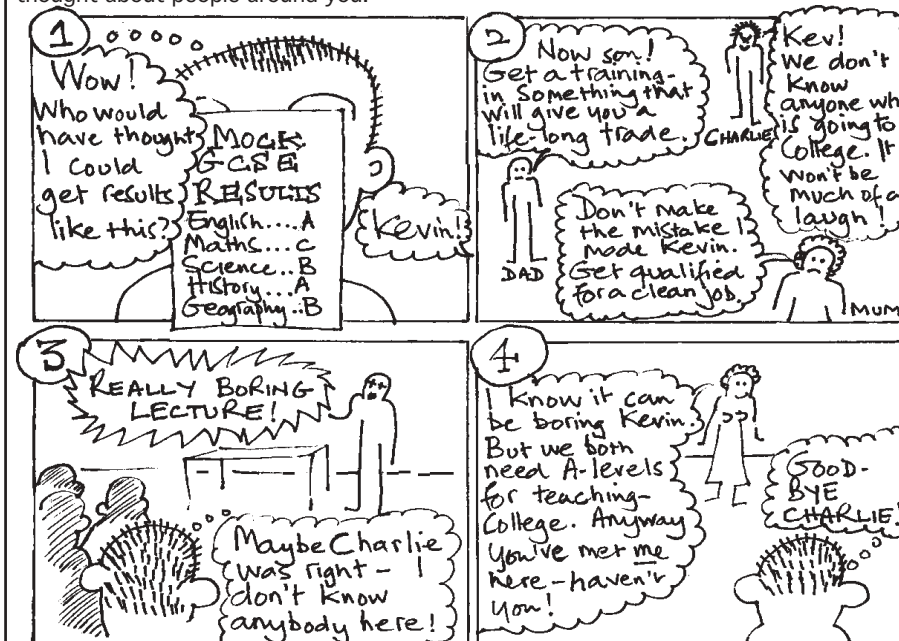 thought about people around you.
1
Wow!
Who would
have thought
I could
get results
like this?
MOCK
GCSE
RESULTS
English....A
Maths....C
Science...B
History....A
Geography..B
Kevin!
2
Now son!
Get a training-
in something that
will give you a
life-long trade.
DAD
CHARLIE
Kev!
We don't
know
anyone wh
is going to
College. It
won't be
much of a
laugh!
Don't make
the mistake I
made Kevin.
Get qualified
for a clean job.
MUM
3
REALLY BORING
LECTURE!
Maybe Charlie
was right - I
don't know
anybody here!
4
I know it can
be boring Kevin.
But we both
need A-levels
for teaching-
College. Anyway
you've met me
here - haven't
you!
GOOD-
BYE
CHARLIE!